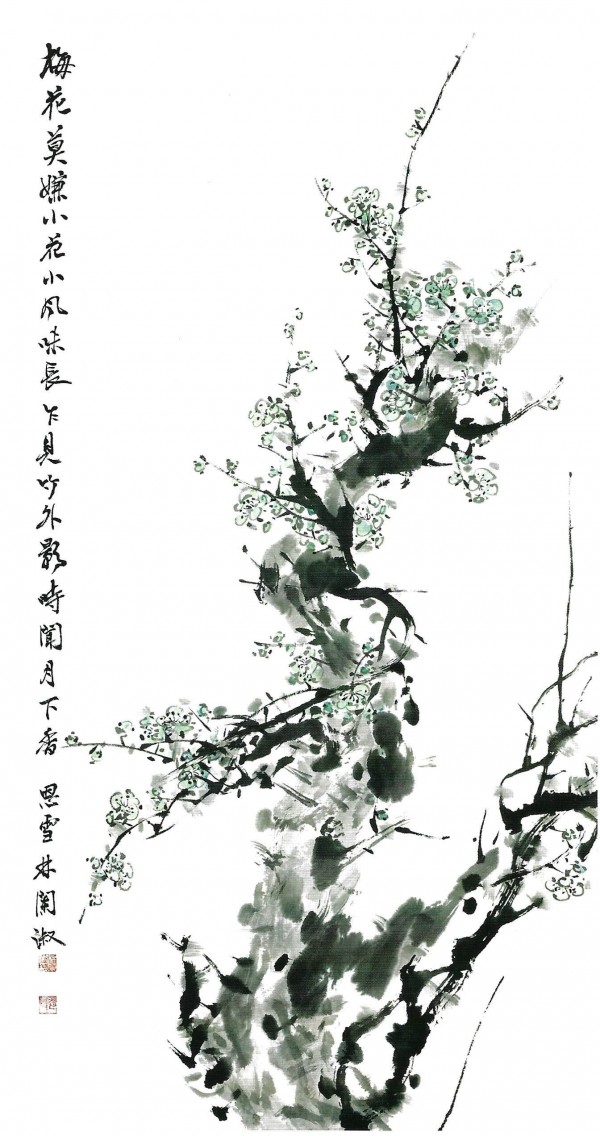 梅花莫嫌小花小風味長乍見竹外影時聞月下香 思雪 林闌淑